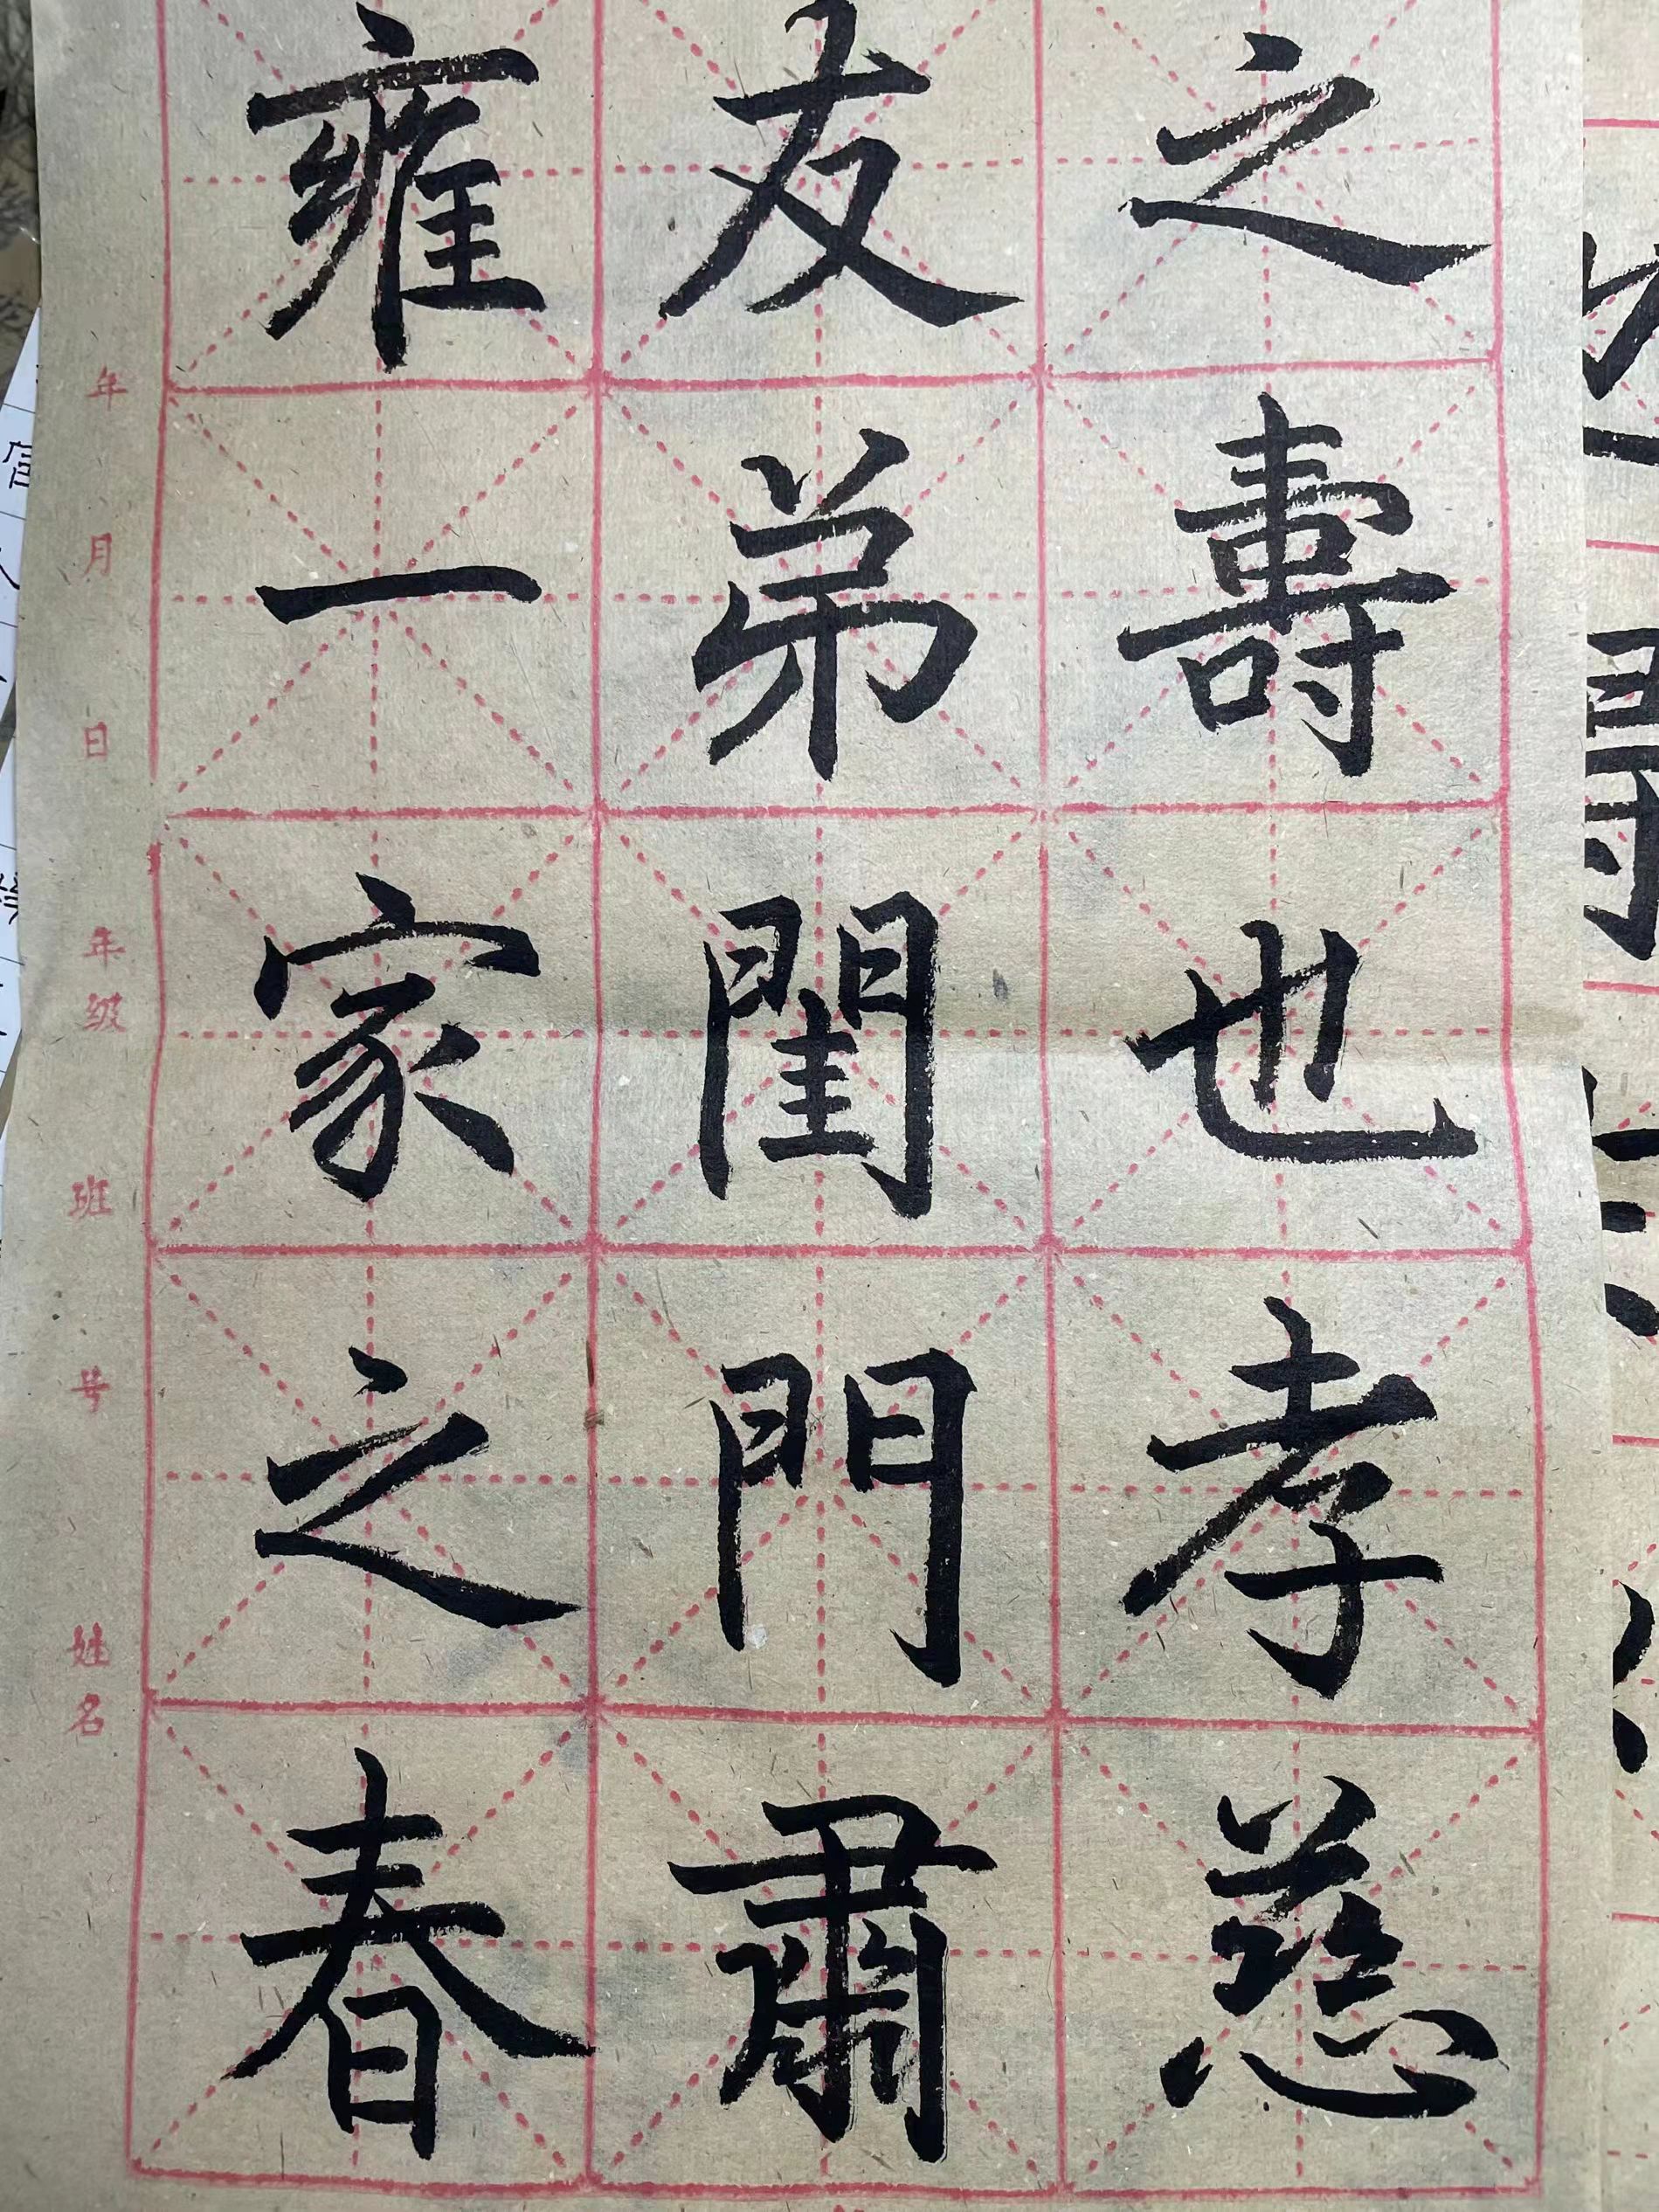 之壽也孝慈
友弟閨門肅
雍一家之春
年 月 日 年级 班 号 姓名